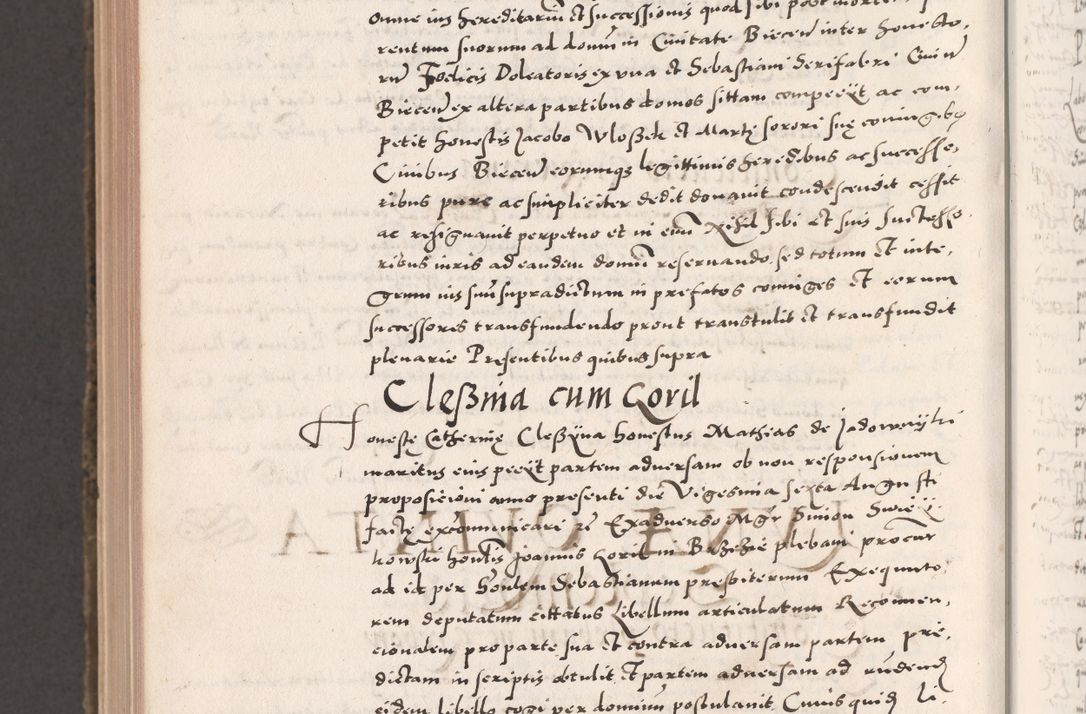 omne ius hereditarium et successionis quod sibi post mortem
rentum suorum ad domum in Civitate Biecen inter honesto,
rum Foelicis Doleatoris ex una et Sebastiani Serifabri Civium
Biecen ex altera partibus domos sittam compeciit ac com,
petit honestis Jacobo Wloßek et Marthę sorori suę coniugibus
Civibus Biecen eorumque legittimis heredibus ac successo,
ribus pure ac simpliciter dedit donavit condescendit cessit
ac resignavit perpetuo et in evum Nihil sibi et suis successo,
ribus iuris ad eandem domum reservando, sed totum et inte,
grum ius suum supradictum in prefatos coniuges et eorum
successores transfundendo prout transtulit et transfundit
plenarie Presentibus quibus supra
Cleßina cum Goril
Honestę Catherinę Cleßyna honestus Mathias de Jadowniki
maritus eius peciit partem adversam ob non responsionem
proposicioni anno presenti die Vigesima sexta Augusti
factę excommunicari etc Exadverso Mgr Simon
kowski honesti Joannis Goril in Brzezie plebani procur
ad id per honlem Sebastianum presbiterum Exequuto,
rem deputatum cittatus Libellum articulatum Reconven,
cionalem pro parte sua et contra adversam partem pre,
dictam in scriptis obtulit et partem adversam ad rńdend
eidem libello cogi per dominum postulavit. Cuiusquidem Li,